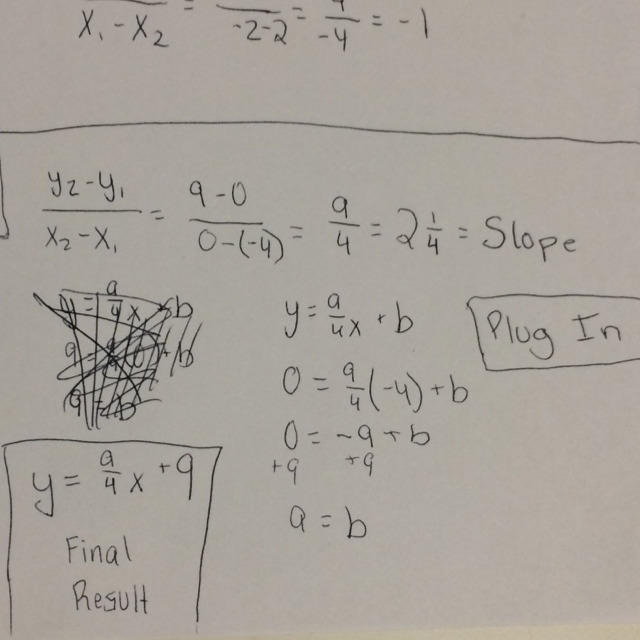 X₁ - X₂ = -2-2 = -4 = -1
y₂-y₁ / x₂-x₁ = 9-0 / 0-(-4) = 9/4 = 2 1/4 = Slope
y = 9/4x + b
y = 9/4x + b
Plug In
0 = 9/4(-4) + b
0 = -9 + b
+9 +9
9 = b
y = 9/4x + 9
Final
Result